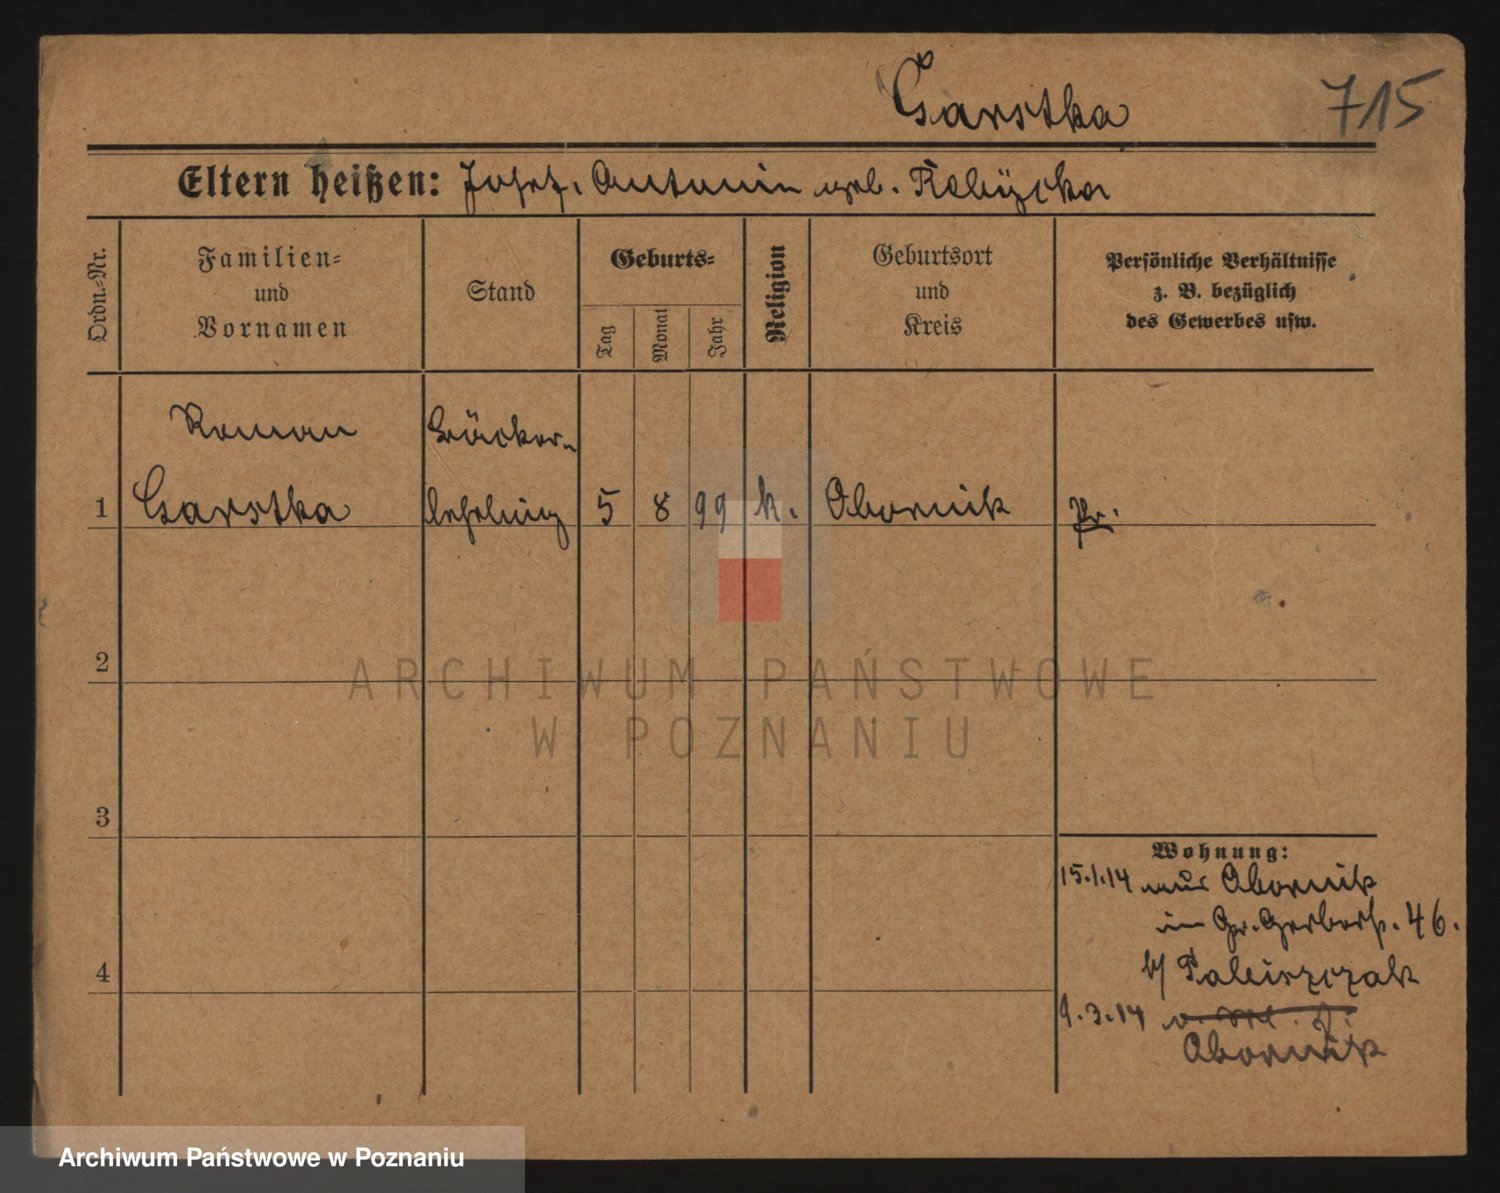 Garstka
715
Eltern heißen: Josef, Antonin geb. Rebycka
Ordn.-Nr.
Familien-
und
Vornamen
Stand
Geburts-
Tag
Monat
Jahr
Religion
Geburtsort
und
Kreis
Persönliche Verhältnisse
z. B. bezüglich
des Gewerbes usw.
Roman
Bäcker-
1 Garstka lehrling 5 8 99 k. Obornik Pr.
2
ARCHIWUM PAŃSTWOWE
W POZNANIU
3
Wohnung:
15.1.14 aus Obornik
in Gr. Gerberst. 46.
b/ Paluszczak
4
9.3.14
Obornik
Archiwum Państwowe w Poznaniu